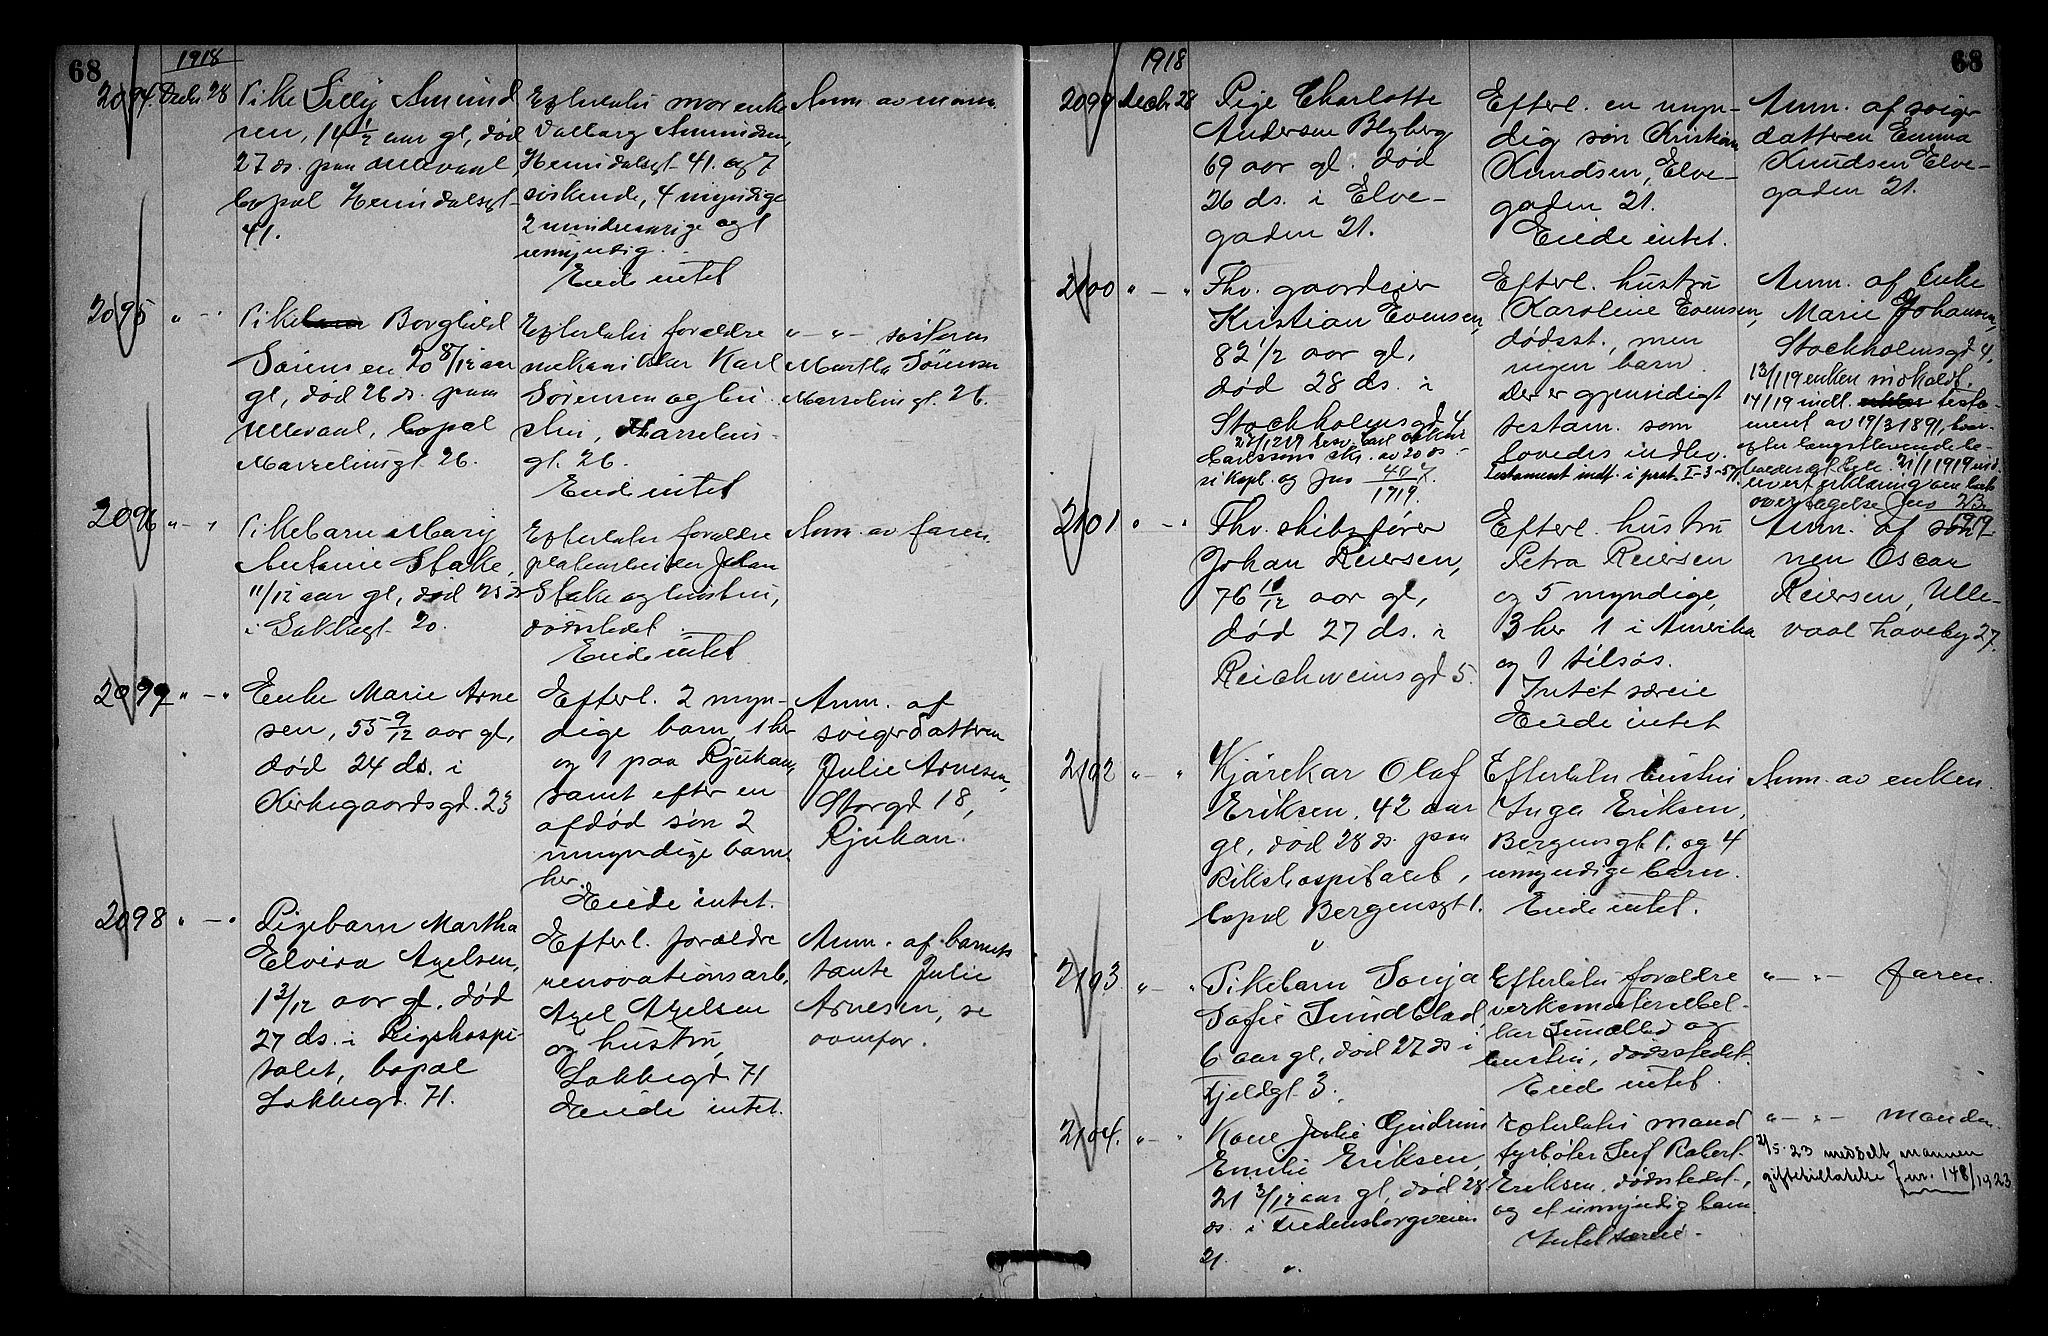 68
1918
2094. Decbr 28
Pike Lilly Amund
sen, 14 1/2 aar gl, død
27 ds. paa Ullevaal,
bopæl Heimdalsgt
41.
Efterlater mor enke
Valborg Amundsen,
Heimdalsgt 41. og 7
søskende, 4 myndige
2 mindreaarige og 1
umyndig.
Eied intet
Anm. av moren
2095 " - "
Pike Borghild
Sørensen 20 8/12 aar
gl, død 26 ds. paa
Ullevaal, bopæl
Marselisgt. 26.
Efterlater forældre
mekaniker Karl
Sørensen og hu
stru, Marselis-
gt. 26.
Eied intet
" - " - søsteren
Martha Sørensen
Marselisgt. 26.
2096 " - "
Pikebarn Mary
Antonie Stake,
11/12 aar gl, død 25 ds
i Lakkegt 20.
Efterlater forældre
platearbeider Johan
Stake og hustru,
dødsstedet.
Eied intet
Anm. av faren
2097 " - "
Enke Marie Arne
sen, 55 9/12 aar gl,
død 24 ds. i
Kirkegaardsgd. 23
Efterl. 2 myn-
dige barn, 1 her
og 1 paa Rjukan,
samt efter en
afdød søn 2
umyndige barn
her.
Eiede intet.
Anm. af
svigerdatteren
Julie Arnesen,
Storgd 18,
Rjukan.
2098 " - "
Pigebarn Martha
Elvira Axelsen,
1 3/12 aar gl. død
27 ds. i Rigshospi-
talet, bopæl
Lakkegd. 71.
Efterl. forældre
renovationsarb.
Axel Axelsen
og hustru,
Lakkegd 71
Eiede intet.
Anm. af barnets
tante Julie
Arnesen, se
ovenfor.
68
1918
2099 Decbr 28
Pige Charlotte
Andersen Blyberg
69 aar gl. død
26 ds. i Elve-
gaden 21.
Efterl. en myn-
dig søn Kristian
Knudsen, Elve-
gaden 21.
Eiede intet.
Anm. af sviger
datteren Emma
Knudsen Elve-
gaden 21.
2100 " - "
Fhv. gaardeier
Kristian Evensen,
82 1/2 aar gl,
død 28 ds. i
Stockholmsgd 4
Efterl. hustru
Karoline Evensen,
dødsst., men
ingen barn.
Der er gjensidigt
testam. som
lovedes indlev.
Testament indf. i prot I-3-57.
Anm. af enke
Marie Johansen,
Stockholmsgd 4.
13/1 19 enken indkaldt.
14/19 indl. testa-
ment av 19/3 1891,
2101 " - "
Fhv. skibsfører
Johan Reiersen,
76 10/12 aar gl,
død 27 ds. i
Reichweinsgd 5.
Efterl. hustru
Petra Reiersen
og 5 myndige,
3 her 1 i Amerika
og 1 tilsøs.
Intet særeie
Eiede intet
Anm. af søn
nen Oscar
Reiersen, Ulle-
vaal haveby 27.
2102 " - "
Kjørekar Olaf
Eriksen, 42 aar
gl, død 28 ds. paa
Rikshospitalet,
bopæl Bergensgt 1.
Efterlater hustru
Inga Eriksen,
Bergensgt 1. og 4
umyndige barn.
Eiede intet.
Anm. av enken.
2103. " - "
Pikebarn Sonja
Sofie Sundblad
6 aar gl, død 27 ds i
Fjeldgt 3.
Efterlater forældre
hustru, dødsstedet.
Eiede intet.
" - " - faren.
2104. " - "
Kone Julie Gudrun
Emilie Eriksen,
21 3/12 aar gl, død 28
ds. i Fredensborgveien
21.
Efterlater mand
fyrbøter Leif Robert
Eriksen, dødsstedet,
og et umyndig barn
Intet særeie.
" - " - manden.
2/5-23 meddelt mannen
giftetillatelse Jnr. 148/1923